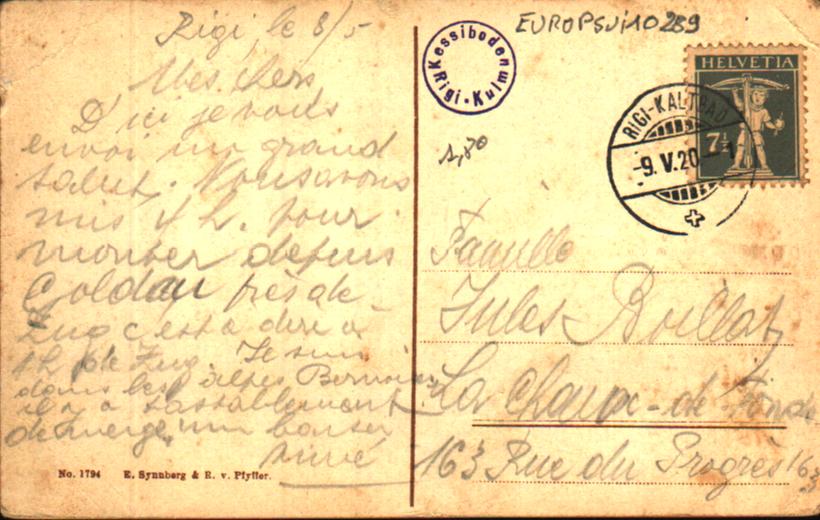 Rigi, le 8/5
Mes chers
D'ici je vous
envoi un grand
salut. Nous avons
mis 4 h. pour
monter depuis
Goldau près de
Zug c'est a dire a
1 h de Zug. Je suis
dans les alpes Bernoises
il y a passablement
de neige, un baiser
Aimé
No. 1794 E. Synnberg & R. v. Pfyffer.
EUROPSVI10 289
Kessiboden
Rigi-Kulm
1,80
HELVETIA
7½
RIGI-KALTBAD
-9.V.20.-1
Famille
Jules Boillat
La Chaux-de-Fonds
163 Rue du Progrès 163